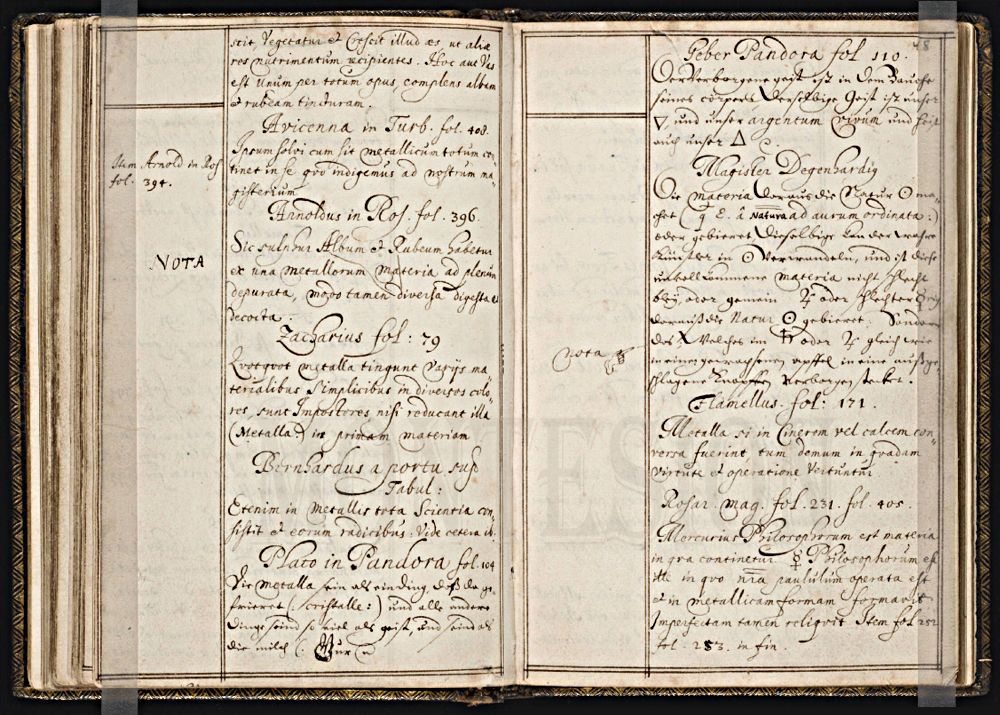 scit, Vegetatur et Crescit illud æs, ut aliæ
res nutrimentum recipientes. Hoc aut Vas
est Unum per totum opus, complens albam
et rubeam tincturam.
Avicenna in Turb. fol. 408.
Ipsum solvi cum sit metallicum totum con„
tinet in se qvo indigemus ad nostrum ma„
gisterium
Item Arnold in Ros
fol. 394.
Arnoldus in Ros. fol. 396.
NOTA
Sic sulphur Album et Rubeum habetur
ex una metallorum materia ad plenum
depurata, modo tamen diversa digesta et
decocta.
Zacharius fol: 79
Qvotqvot metalla tingunt varijs ma„
terialibus simplicibus in diversos colo„
res, sunt Impostores nisi reducant illa
(Metalla:) in primam materiam
Bernhardus a portu sup
Tabul:
Etenim in Metallis tota Scientia con„
sistit et eorum radicibus: Vide cetera ib.
Plato in Pandora fol. 104
Die Metalla sein als ein ding, daß da ge„
frieret (: Cristalle:) und alle andere
dinge seind so viel als geist, und seind als
die milch
48
Geber Pandora fol 110.
Der Verborgene geist ist in dem bauche
seines cörpers. Derselbige Geist ist unser
🜄, und unser argentum vivum und heist
auch unser 🜂
Magister Degenhardg
Die materia daraus die Natur ☉ ma„
chet (q. E. â Natura ad aurum ordinata:)
oder gebieret, dieselbige kan der wahre
künstler in ☉ verwandeln, und ist diese
materia nicht schlecht
bley oder gemein ☿ oder schlechter
Natur ☉ gebieret. Sondern
nota ☞
des welches im oder ☿ gleich wie
in einem gewachsenen apffel in eine
verborgen stecket.
Flamellus. fol: 171.
Metalla si in Cinerem vel calcem con„
versa fuerint, tum demum in qvadam
Virtute et operatione vertuntur
Rosar. mag. fol. 231. fol. 405.
Mercurius Philosophorum est materia
in qva continetur ☿ Philosophorum est
ille in qvo nra paululum operata est
et in metallicam formam formavit
Imperfectam tamen religvit Item fol 252
fol. 253. in fin.